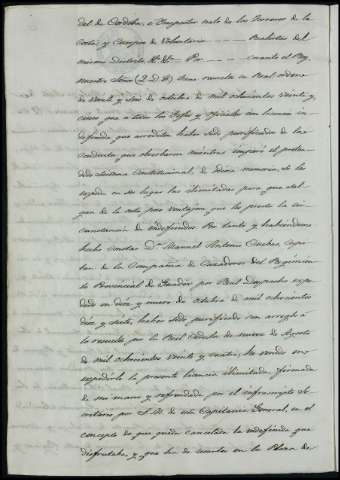 del de Cordoba, é Inspector nato de los Tercios de la
Costa y Cuerpos de Voluntarios Realistas del
mismo distrito &c. &c. Por cuanto el Rey
nuestro Señor (Q.D.G) tiene resuelto en Real orden
de veinte y seis de octubre de mil ochocientos veinte y
cinco que a todos los Gefes y oficiales con licencia in-
definida que acrediten haber sido purificados de las
conductas que observaron mientras imperó el preten-
dido sistema Constitucional, de odiosa memoria, se les
expida en su lugar las ilimitadas para que sal-
gan de la nota poco ventajosa que les presta la cir-
cunstancia de indefinidos: Por tanto y habiendome
hecho constar Dn. Manuel Antonio Capi-
tan de la Compañia de Cazadores del Regimien-
to Provincial de por Real despacho expe-
dido en diez y nueve de octubre de mil ochocientos
diez y siete, haber sido purificado con arreglo á
lo resuelto por la Real Cedula de nueve de Agosto
de mil ochocientos veinte y cuatro; he venido en
expedirle la presente licencia ilimitada, firmada
de mi mano y refrendada por el infrascripto Se-
cretario por S.M. de esta Capitania General, en el
concepto de que queda cancelada la indefinida que
disfrutaba, y que ha de usarla en la Plaza de